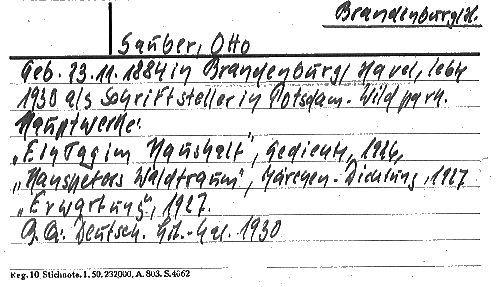 Brandenburg/H.
Sauber, Otto
Geb. 23.11.1884 in Brandenburg/Havel, lebt
1930 als Schriftsteller in Potsdam-Wildpark.
Hauptwerke:
„Ein Tag im Haushalt", Gedicht, 1926,
„Hanspeters Waldtraum", Märchen-Dichtung, 1927
„Erwartung", 1927.
Deutsch. Lit.-Kal. 1930
Reg. 10 Stichnote. I. 50. 232000, A. 803. S. 4662